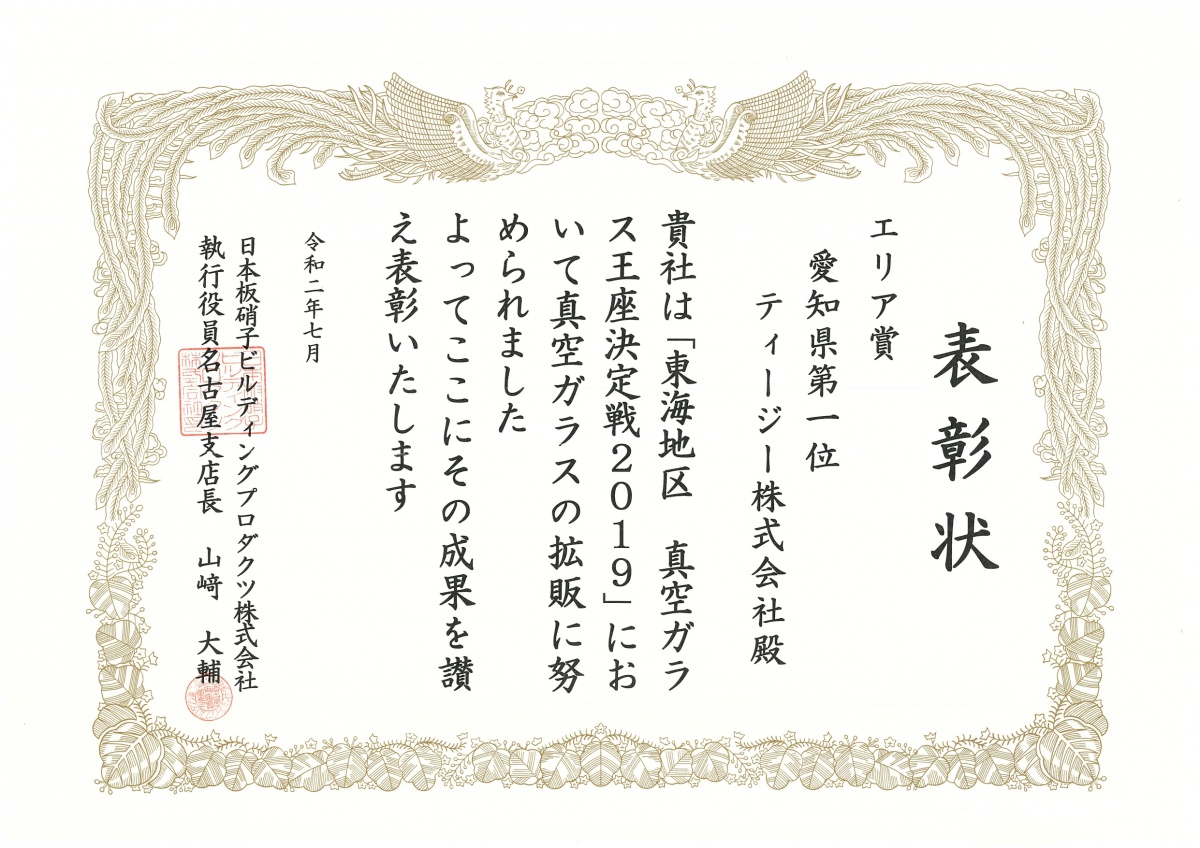 表彰状
エリア賞
愛知県第一位
ティージー株式会社殿
貴社は「東海地区　真空ガラ
ス王座決定戦2019」にお
いて真空ガラスの拡販に努
められました
よってここにその成果を讃
え表彰いたします
令和二年七月
日本板硝子ビルディングプロダクツ株式会社
執行役員名古屋支店長　山﨑　大輔